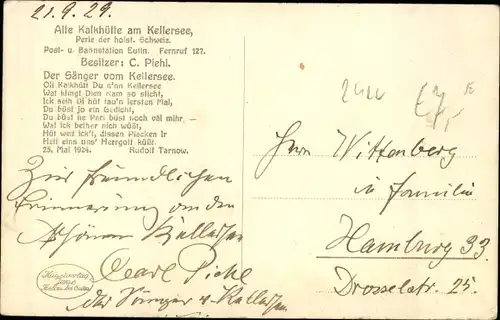 21.9.29.
Alte Kalkhütte am Kellersee,
Perle der holst. Schweiz.
Post- u. Bahnstation Eutin. Fernruf 127.
Besitzer: C. Piehl.
Der Sänger vom Kellersee.
Oll Kalkhütt Du a'nn Kellersee
Wat klingt Dien Nam so slicht,
Ick seih Di hüt tau'n iersten Mal,
Du büst jo ein Gedicht,
Du büst ne Parl büst noch väl mihr, —
Wat ick beiher nich wüßt,
Hüt weit ick't, dissen Placken Ir
Hett eins uns' Herrgott küßt.
25. Mai 1924. Rudolf Tarnow.
Zur freundlichen
Erinnerung an den
schönen Kellersee
Carl Piehl
der Sänger v. Kellersee
Herrn Wittenberg
u Familie
Hamburg 33
Drosselstr. 25.